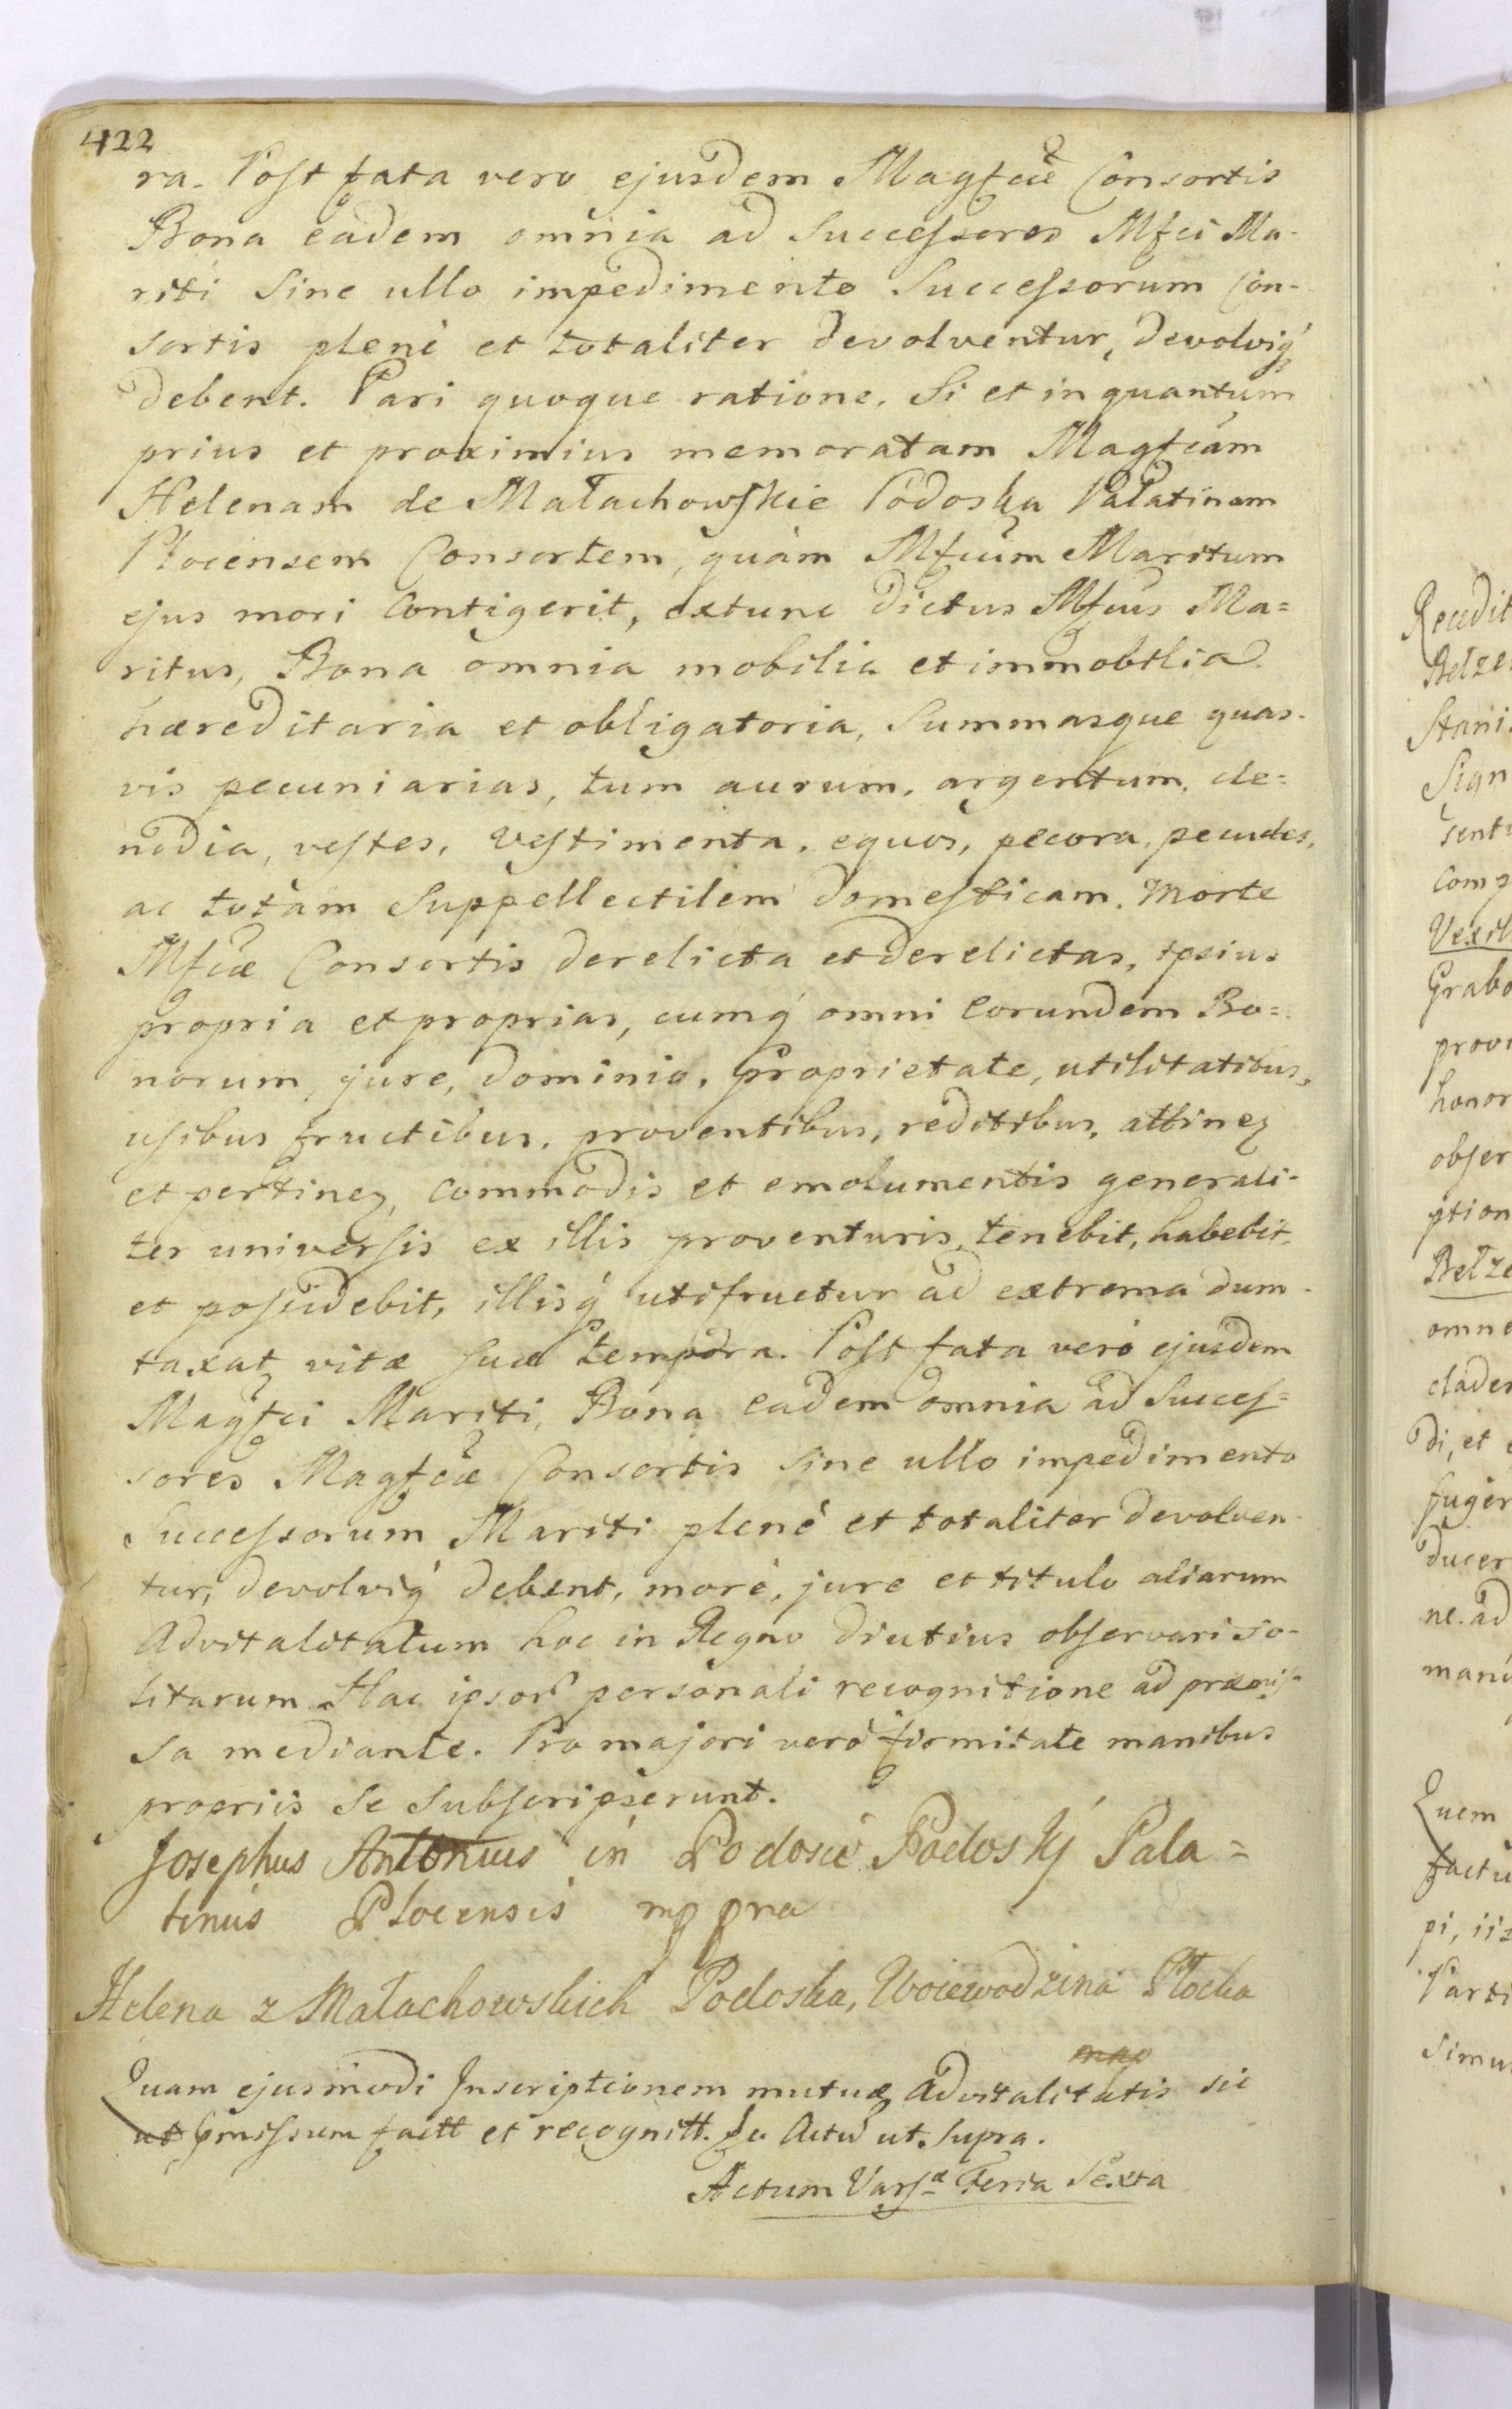 422
ra. Post fata vero ejusdem Magfcæ Consortis
Bona eadem omnia ad Successores Mfci Ma-
riti Sine ullo impedimento Successorum Con-
sortis plenè et totaliter devolventur, devolviq́
debent. Pari quoque ratione. Si et in quantum
prius et proximius memoratam Magfcam
Helenam de Małachowskie Podoska Palatinam
Plocensem Consortem, quàm Mfcum Maritum
ejus mori Contigerit, extunc dictus Mfcus Ma=
ritus, Bona omnia mobilia et immobilia
hæreditaria et obligatoria, Summasque quas-
vis pecuniarias, tum aurum, argentum, cle=
nodia, vestes, Vestimenta, equos, pecora, pecudes,
ac totam Suppellectilem domesticam. Morte
Mfcæ Consortis derelicta et derelictas, ipsius
propria et proprias, cumq́ omni Eorundem Bo=
norum, jure, dominio, proprietate, utilitatibus,
usibus fructibus, proventibus, reditibus, attinez
et pertinez, Commodis et emolumentis generali-
ter universis ex illis proventuris, tenebit, habebit,
et possidebit, illisq́ utifruetur ad extrema dum-
taxat vitæ suæ tempora. Post fata verò ejusdem
Magfci Mariti, Bona Eadem omnia ad Succes=
sores Magfcæ Consortis Sine ullo impedimento
Successorum Mariti plenè et totaliter devolven-
tur, devolviq́ debent, more, jure et titulo aliarum
Advitalitatum hoc in Regno diutius observari so-
litarum Hac ipsor personali recognitione ad præmis-
sa mediante. Pro majori verò firmitate manibus
propriis Se Subscripserunt.
Josephus Antonius in Podosie Podoskj Pala=
tinus Plocensis mppra
Helena z Małachowskich Podoska, Woiewodzina Płocka
mpp
Quam ejusmodi Inscriptionem mutuæ Advitalitatis sic
ut pmissum factt et recognitt. Actu ut Supra.
Actum Varsæ Feria Sexta